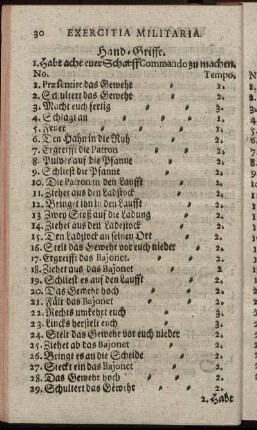 30 EXERCITIA MILITARIA
Hand-Griffe.
1. Habt acht euer Scharff Commando zu machen.
No. Tempo.
1. Præsentirt das Gewehr 2.
2. Schultert das Gewehr 2.
3. Macht euch fertig 3.
4. Schlagt an 1.
5. Feuer 1.
6. Den Hahn in die Ruh 2.
7. Ergreifft die Patron 2.
8. Pulver auf die Pfanne 2.
9. Schliest die Pfanne 2.
10. Die Patron in den Laufft 2.
11. Ziehet aus den Ladstock 2.
12. Bringet ihn in den Laufft 2.
13. Zwey Stoß auf die Ladung 2.
14. Ziehet aus den Ladestock 2.
15. Den Ladstock an seinen Ort 2.
16. Stelt das Gewehr vor euch nieder 2.
17. Ergreifft das Bajonet. 2.
18. Ziehet aus das Bajonet 2
19. Schliest es auf den Laufft 2.
20. Das Gewehr hoch 2.
21. Fält das Bajonet 2.
22. Rechts umkehrt euch 3.
23. Lincks herstelt euch 3.
24. Stelt das Gewehr vor euch nieder 2.
25. Ziehet ab das Bajonet 2.
26. Bringt es an die Scheide 2.
27. Steckt ein das Bajonet 2.
28. Das Gewehr hoch 2.
29. Schultert das Gewehr 2.
2. Habt